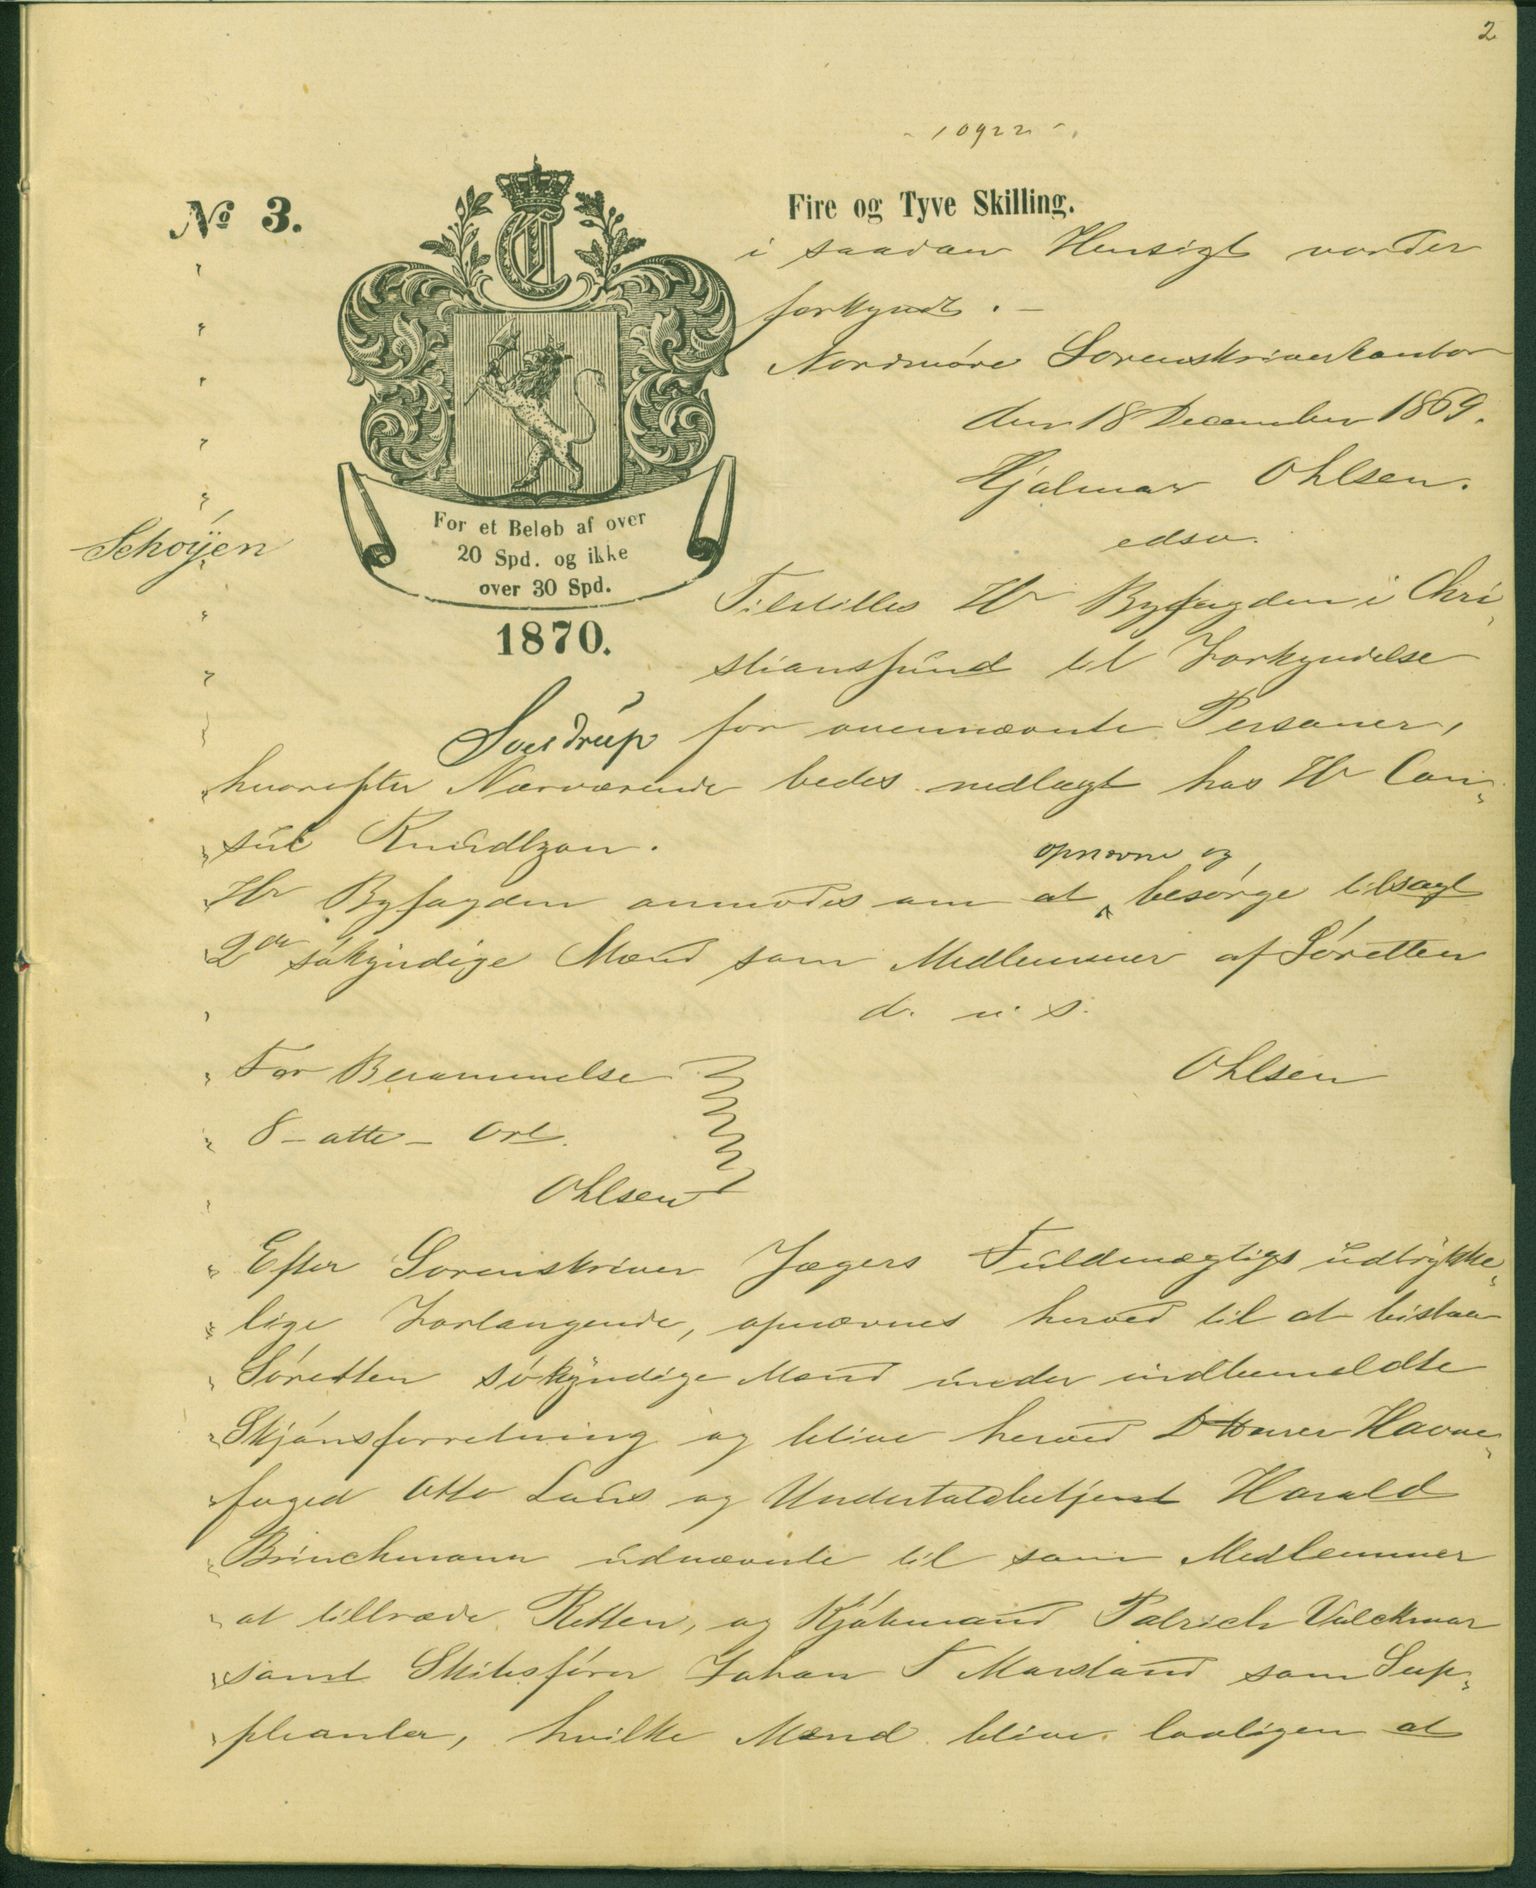 2
- 10922 -
№ 3.
Fire og Tyve Skilling.
i saadan Hensigt vorder
forkyndt . —
Nordmøre Sorenskriverkontor
den 18 December 1869.
Hjalmar Ohlsen.
edsv.
For et Beløb af over
20 Spd. og ikke
over 30 Spd.
1870.
Schøyen
Tilstilles Hr Byfogden i Chri
stianssund til Forkyndelse
Sverdrup for ovennævnte Personer,
hvorefter Nærværende bedes nedlagt hos Hr Con
sul Knudtzon.
opnævne og
Hr Byfogden anmodes om at besørge tilsagt
2de søkyndige Mænd som Medlemmer af Søretten
d. u. s.
Ohlsen
For Berammelse
8 – otte – Ort.
Ohlsen
Efter Sorenskriver Jægers Fuldmægtigs udtrykke
lige Forlangende, opnævnes herved til at bistaa
Søretten søkyndige Mænd under indbemeldte
Skjønsforretning og blive herved DHerrer Havne
foged Otto Saus og Undertoldbetjent Harald
Brinchmann udnævnte til som Medlemmer
at tiltræde Retten, og Kjøbmand Patrich Volckmar
samt Skibsfører Johan F Morsland som Sup
pleanter, hvilke Mænd blive lovligen at